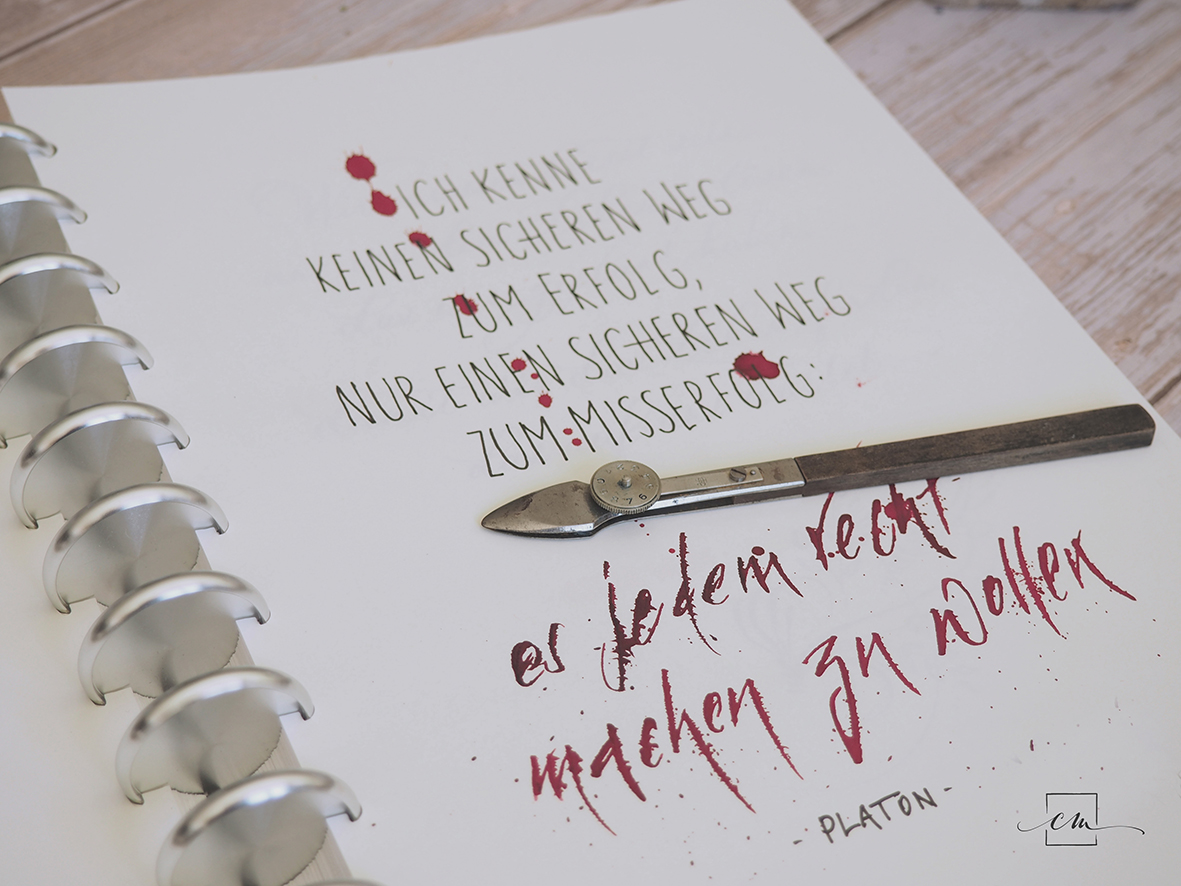 ICH KENNE
KEINEN SICHEREN WEG
ZUM ERFOLG,
NUR EINEN SICHEREN WEG
ZUM MISSERFOLG:
es jedem recht
machen zu wollen
- PLATON -
cm